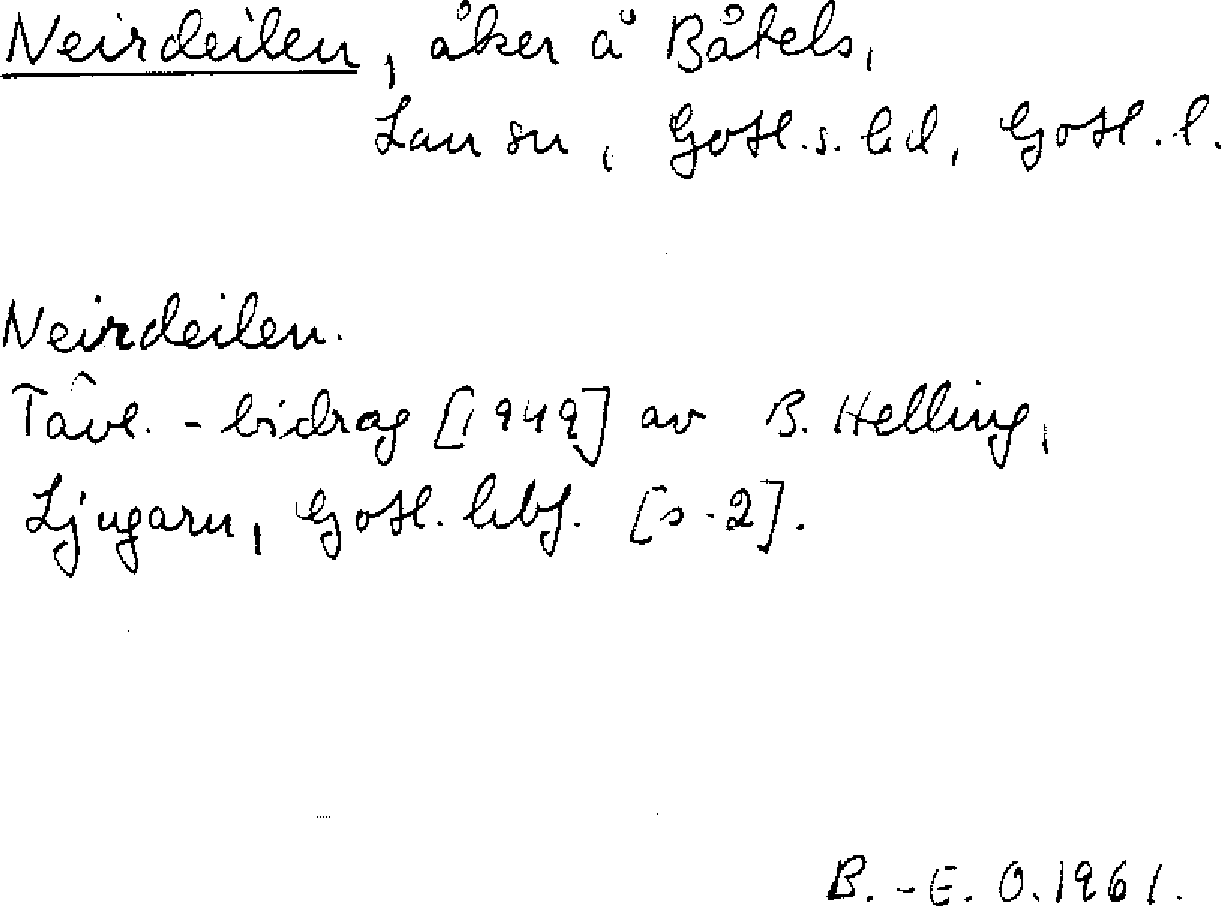 Neirdeilen, åker å Båtels,
Lau sn, Gotl. s. hd, Gotl. l.
Neirdeilen.
Tävl.-bidrag [1949] av B. Helling,
Ljugarn, Gotl. hbf. [s. 2].
B.-E. O. 1961.